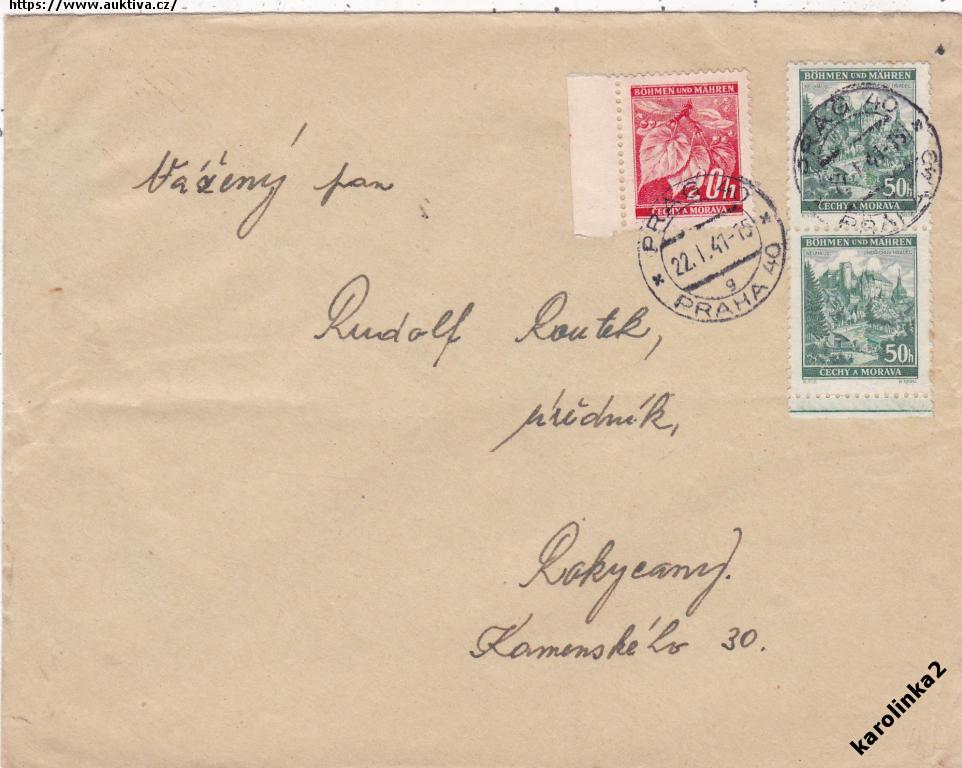 https://www.auktiva.cz/
BÖHMEN UND MÄHREN
20h
ČECHY A MORAVA
BÖHMEN UND MÄHREN
50h
ČECHY A MORAVA
PRAG 40
22.I.41-15
g
PRAHA 40
PRAG 40
BÖHMEN UND MÄHREN
50h
ČECHY A MORAVA
Vážený pan
Rudolf Routek,
úředník,
Rokycany.
Kamenského 30.
karolinka2